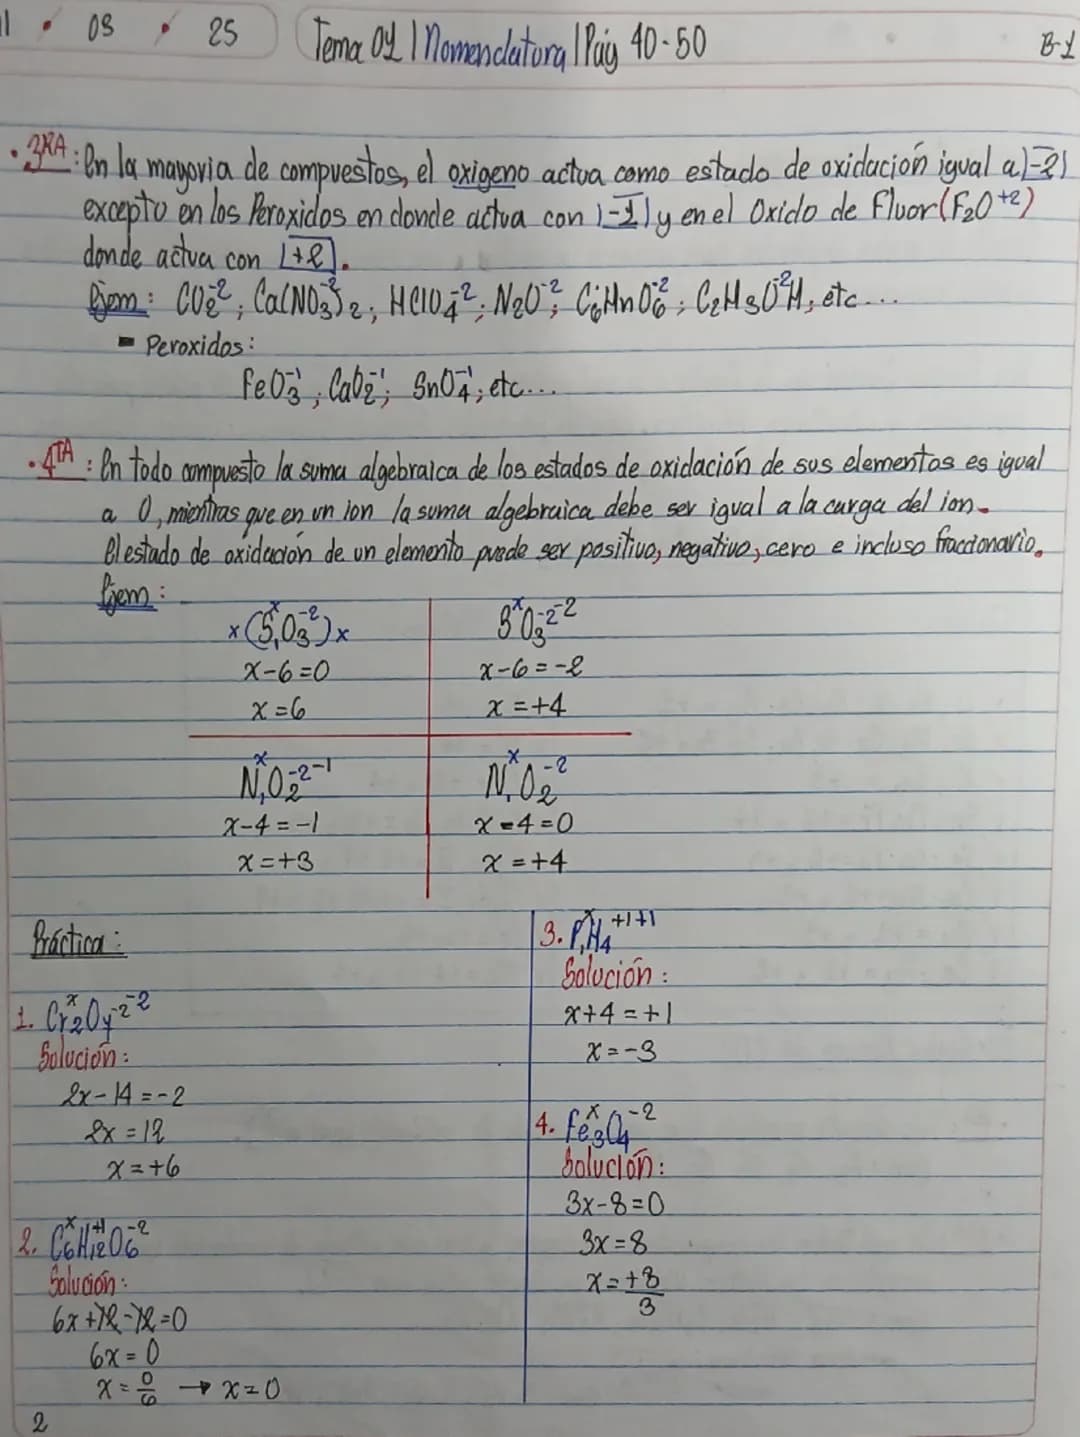 11 • 03 • 25 Tema 01 | Nomenclatura | Pág 40-50 B-1
• 3RA: En la mayoria de compuestos, el oxigeno actua como estado de oxidación igual a |-2|
excepto en los Peroxidos en donde actua con |-1| y en el Oxido de Fluor (F₂O⁺²)
donde actua con |+2|.
Ejem: CO₂⁻²; Ca(NO₃⁻²)₂; HClO₄⁻²; N₂O⁻²; C₆HnO₆⁻²; C₂H₃O⁻²H, etc...
- Peroxidos:
FeO₃⁻¹; CaO₂⁻¹; SnO₄⁻¹; etc...
• 4TA: En todo compuesto la suma algebraica de los estados de oxidación de sus elementos es igual
a 0, mientras que en un ion la suma algebraica debe ser igual a la carga del ion.
El estado de oxidación de un elemento puede ser positivo, negativo, cero e incluso fraccionario.
Ejem:
x(Sˣ₁O₃⁻²)x
x-6=0
x=6
SˣO₃⁻²⁻²
x-6=-2
x=+4
Nˣ₁O₂⁻²⁻¹
x-4=-1
x=+3
Nˣ₁O₂⁻²
x-4=0
x=+4
Práctica:
1. Crˣ₂Oy⁻²⁻²
Solución:
2x-14=-2
2x=12
x=+6
2. Cˣ₆H⁺¹₁₂O₆⁻²
Solución:
6x+12-12=0
6x=0
x=0/6 → x=0
3. Pˣ₁H₄⁺¹⁺¹
Solución:
x+4=+1
x=-3
4. Feˣ₃O₄⁻²
Solución:
3x-8=0
3x=8
x=+8/3
2